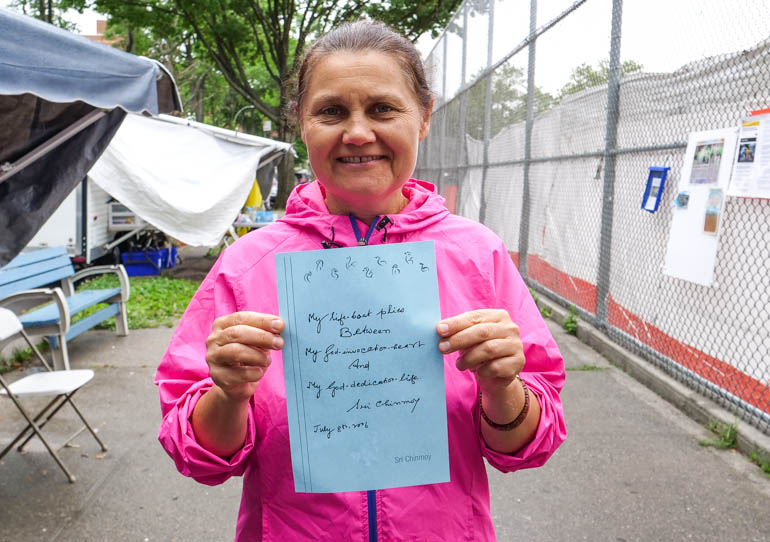 My life-boat plies
Between
My God-invocation-heart
And
My God-dedication-life.
Sri Chinmoy
July 8th, 2006
Sri Chinmoy